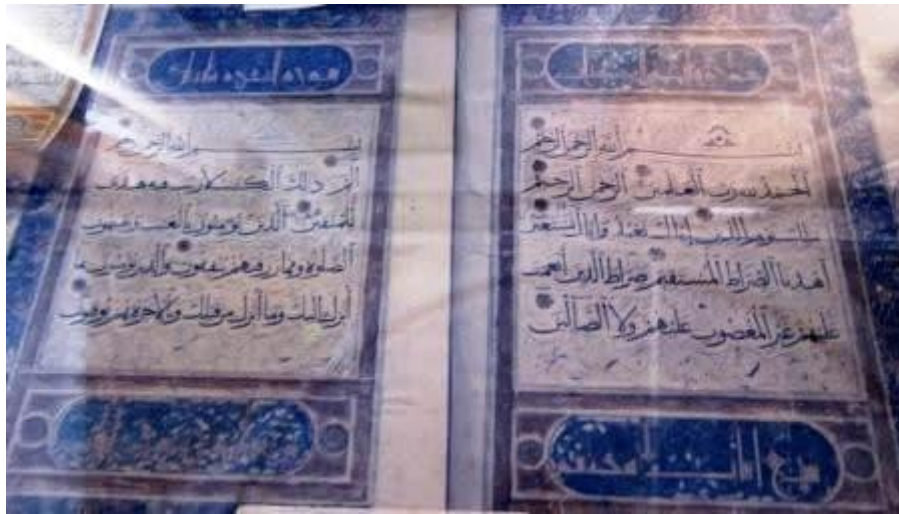 بسم الله الرحمن الرحيم
الحمد لله رب العلمين الرحمن الرحيم
ملك يوم الدين إياك نعبد وإياك نستعين
اهدنا الصراط المستقيم صراط الذين أنعمت
عليهم غير المغضوب عليهم ولا الضالين
سورة البقرة
بسم الله الرحمن الرحيم
الم ذلك الكتب لا ريب فيه هدى
للمتقين الذين يؤمنون بالغيب ويقيمون
الصلوة ومما رزقنهم ينفقون والذين يؤمنون بما
أنزل إليك وما أنزل من قبلك وبالآخرة هم يوقنون